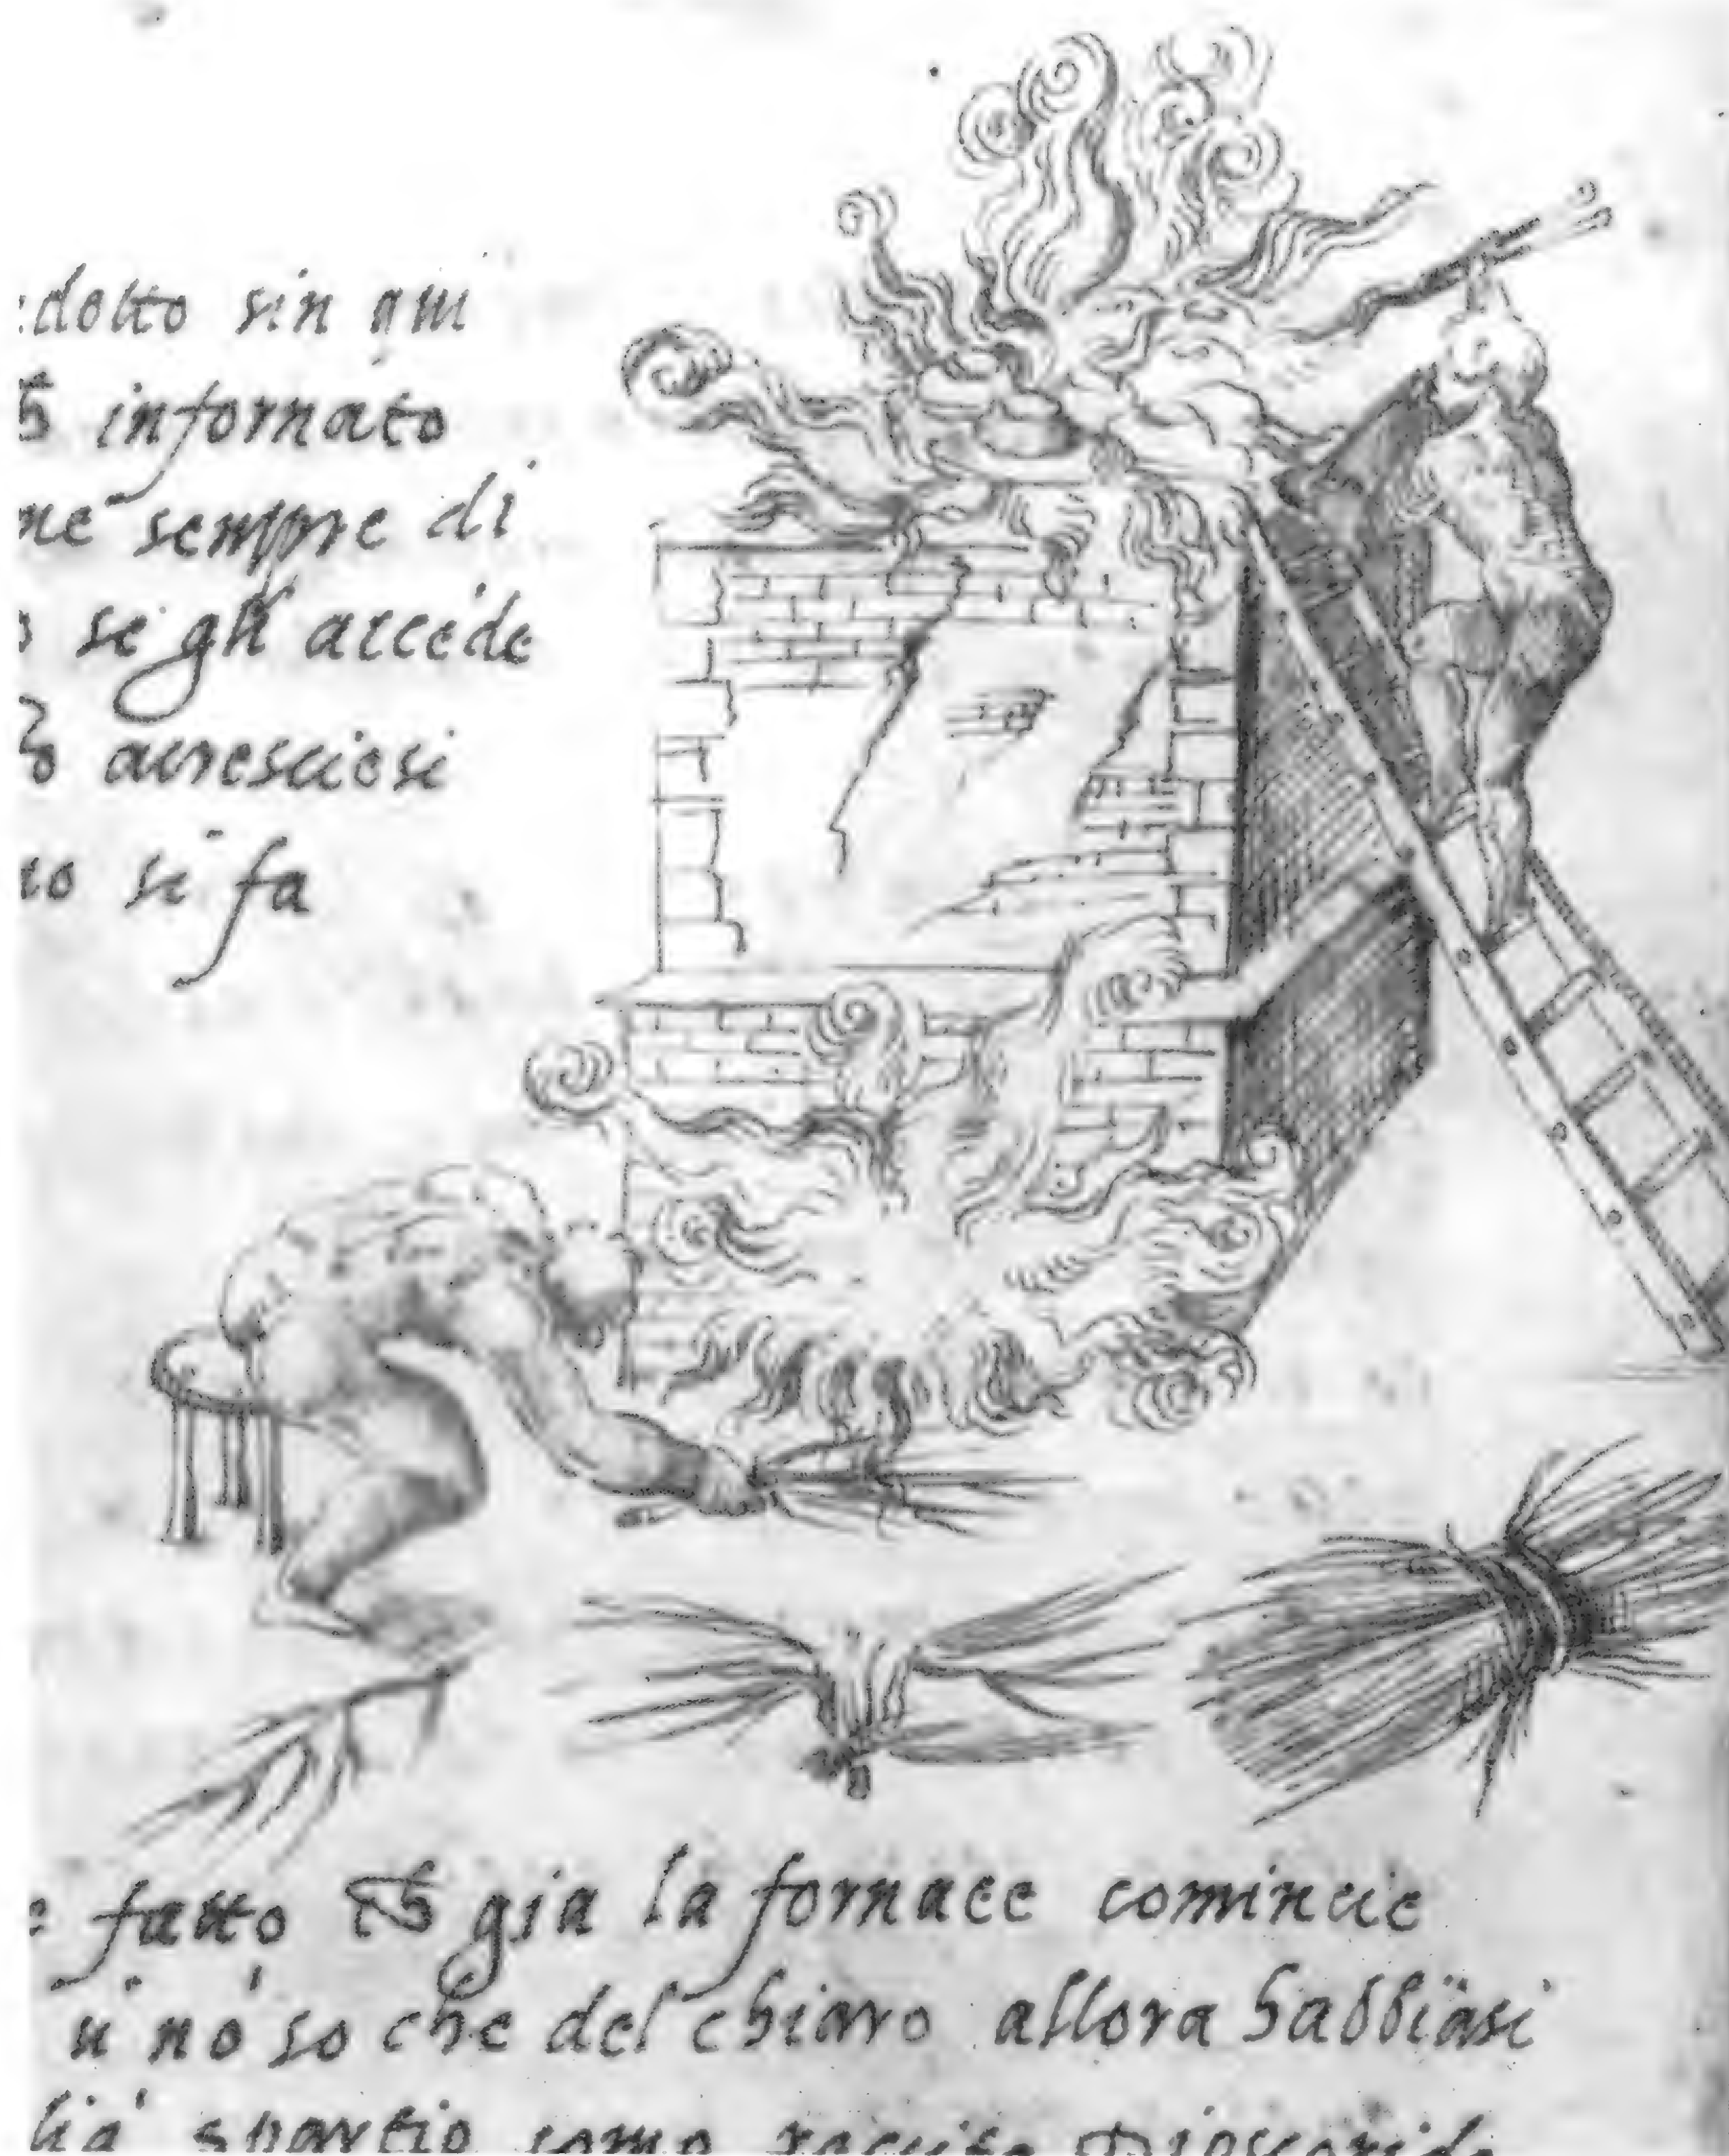 dotto sin qui
infornato
ne sempre di
se gli accéde
accresciesi
si fa
fatto & gia la fornace comincie
u no so che del chiaro allora habbiasi
spartio como